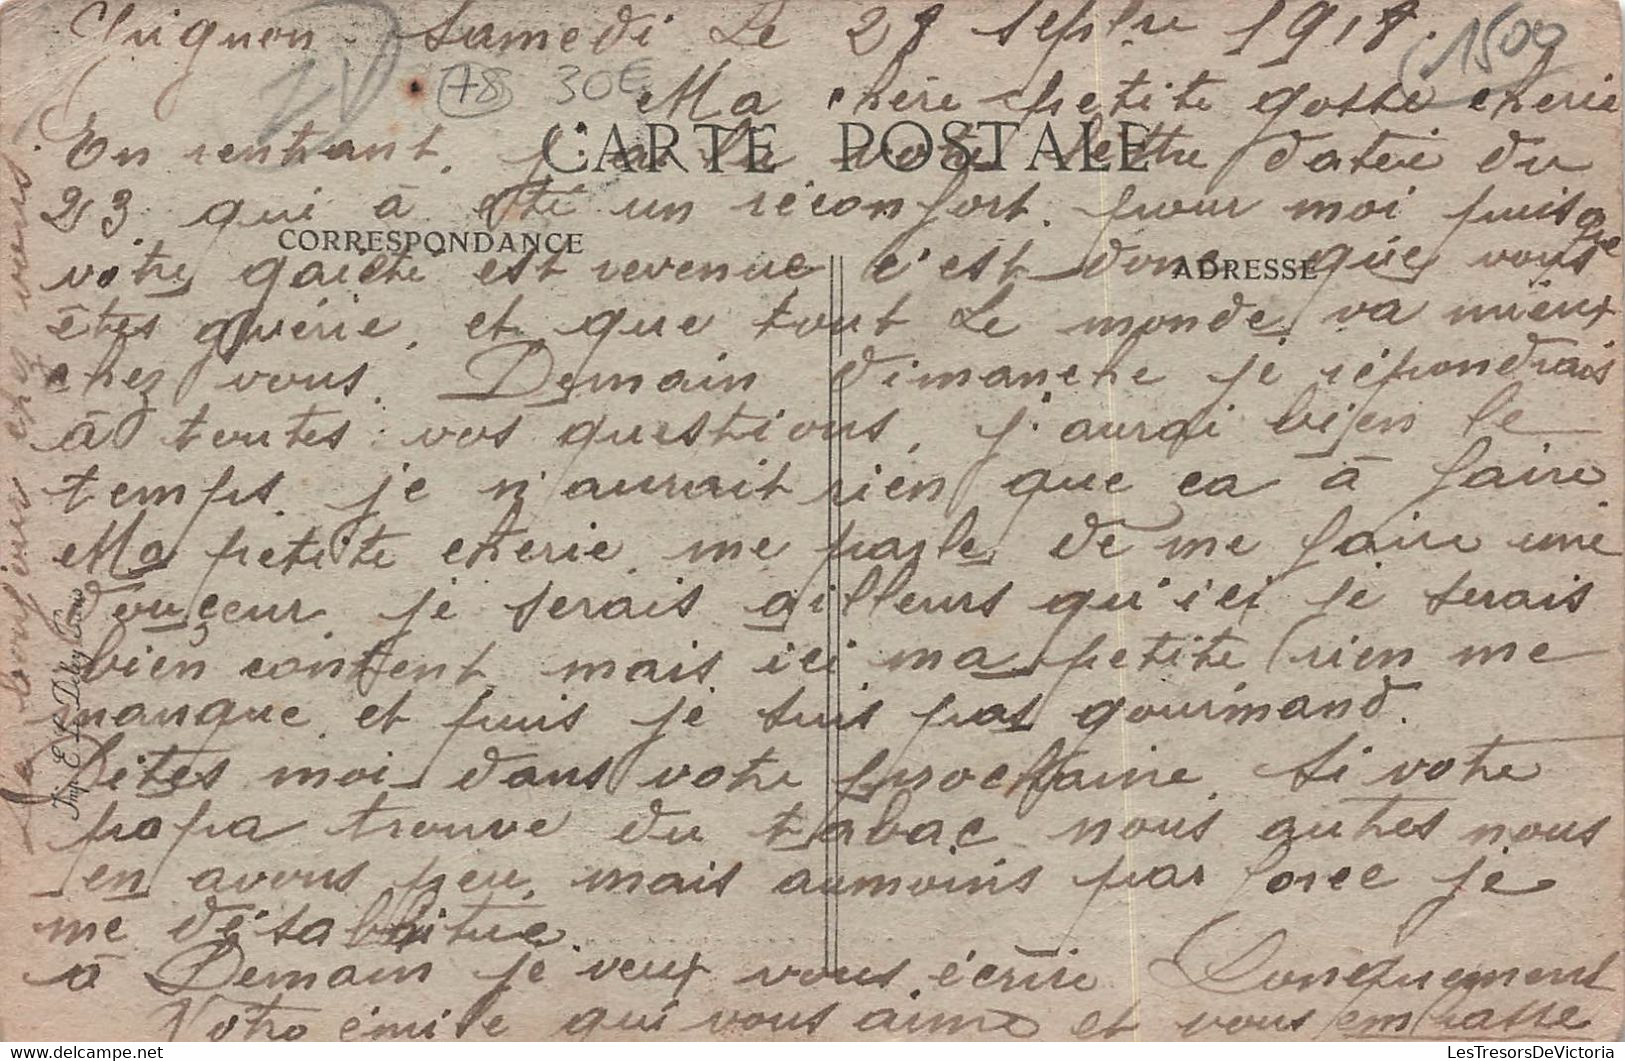 Grignon. Samedi Le 28 Septbre 1918.
1500
78 30€
Ma chère petite gosse cherie
CARTE POSTALE
En rentrant, j'ai lu votre lettre datée du
23 qui à été un réconfort pour moi puisque
CORRESPONDANCE
ADRESSE
votre gaieté est revenue c'est donc que vous
êtes guérie, et que tout Le monde va mieux
chez vous. Demain dimanche je répondrais
à toutes vos questions, j'aurai bien le
temps je n'aurait rien que ça à faire
Ma petite cherie me parle de me faire une
douçeur je serais ailleurs qu'ici je serais
bien content mais ici ma petite rien me
manque et puis je suis pas gourmand.
Dites moi dans votre prochaine Si votre
papa trouve du tabac nous autres nous
en avons peu, mais aumoins par force je
me désabitue.
à Demain je veux vous écrire Longuement
Votre émile qui vous aime et vous embrasse
toujours
vous
Imp. E. Le Deley Paris
LesTresorsDeVictoria
www.delcampe.net